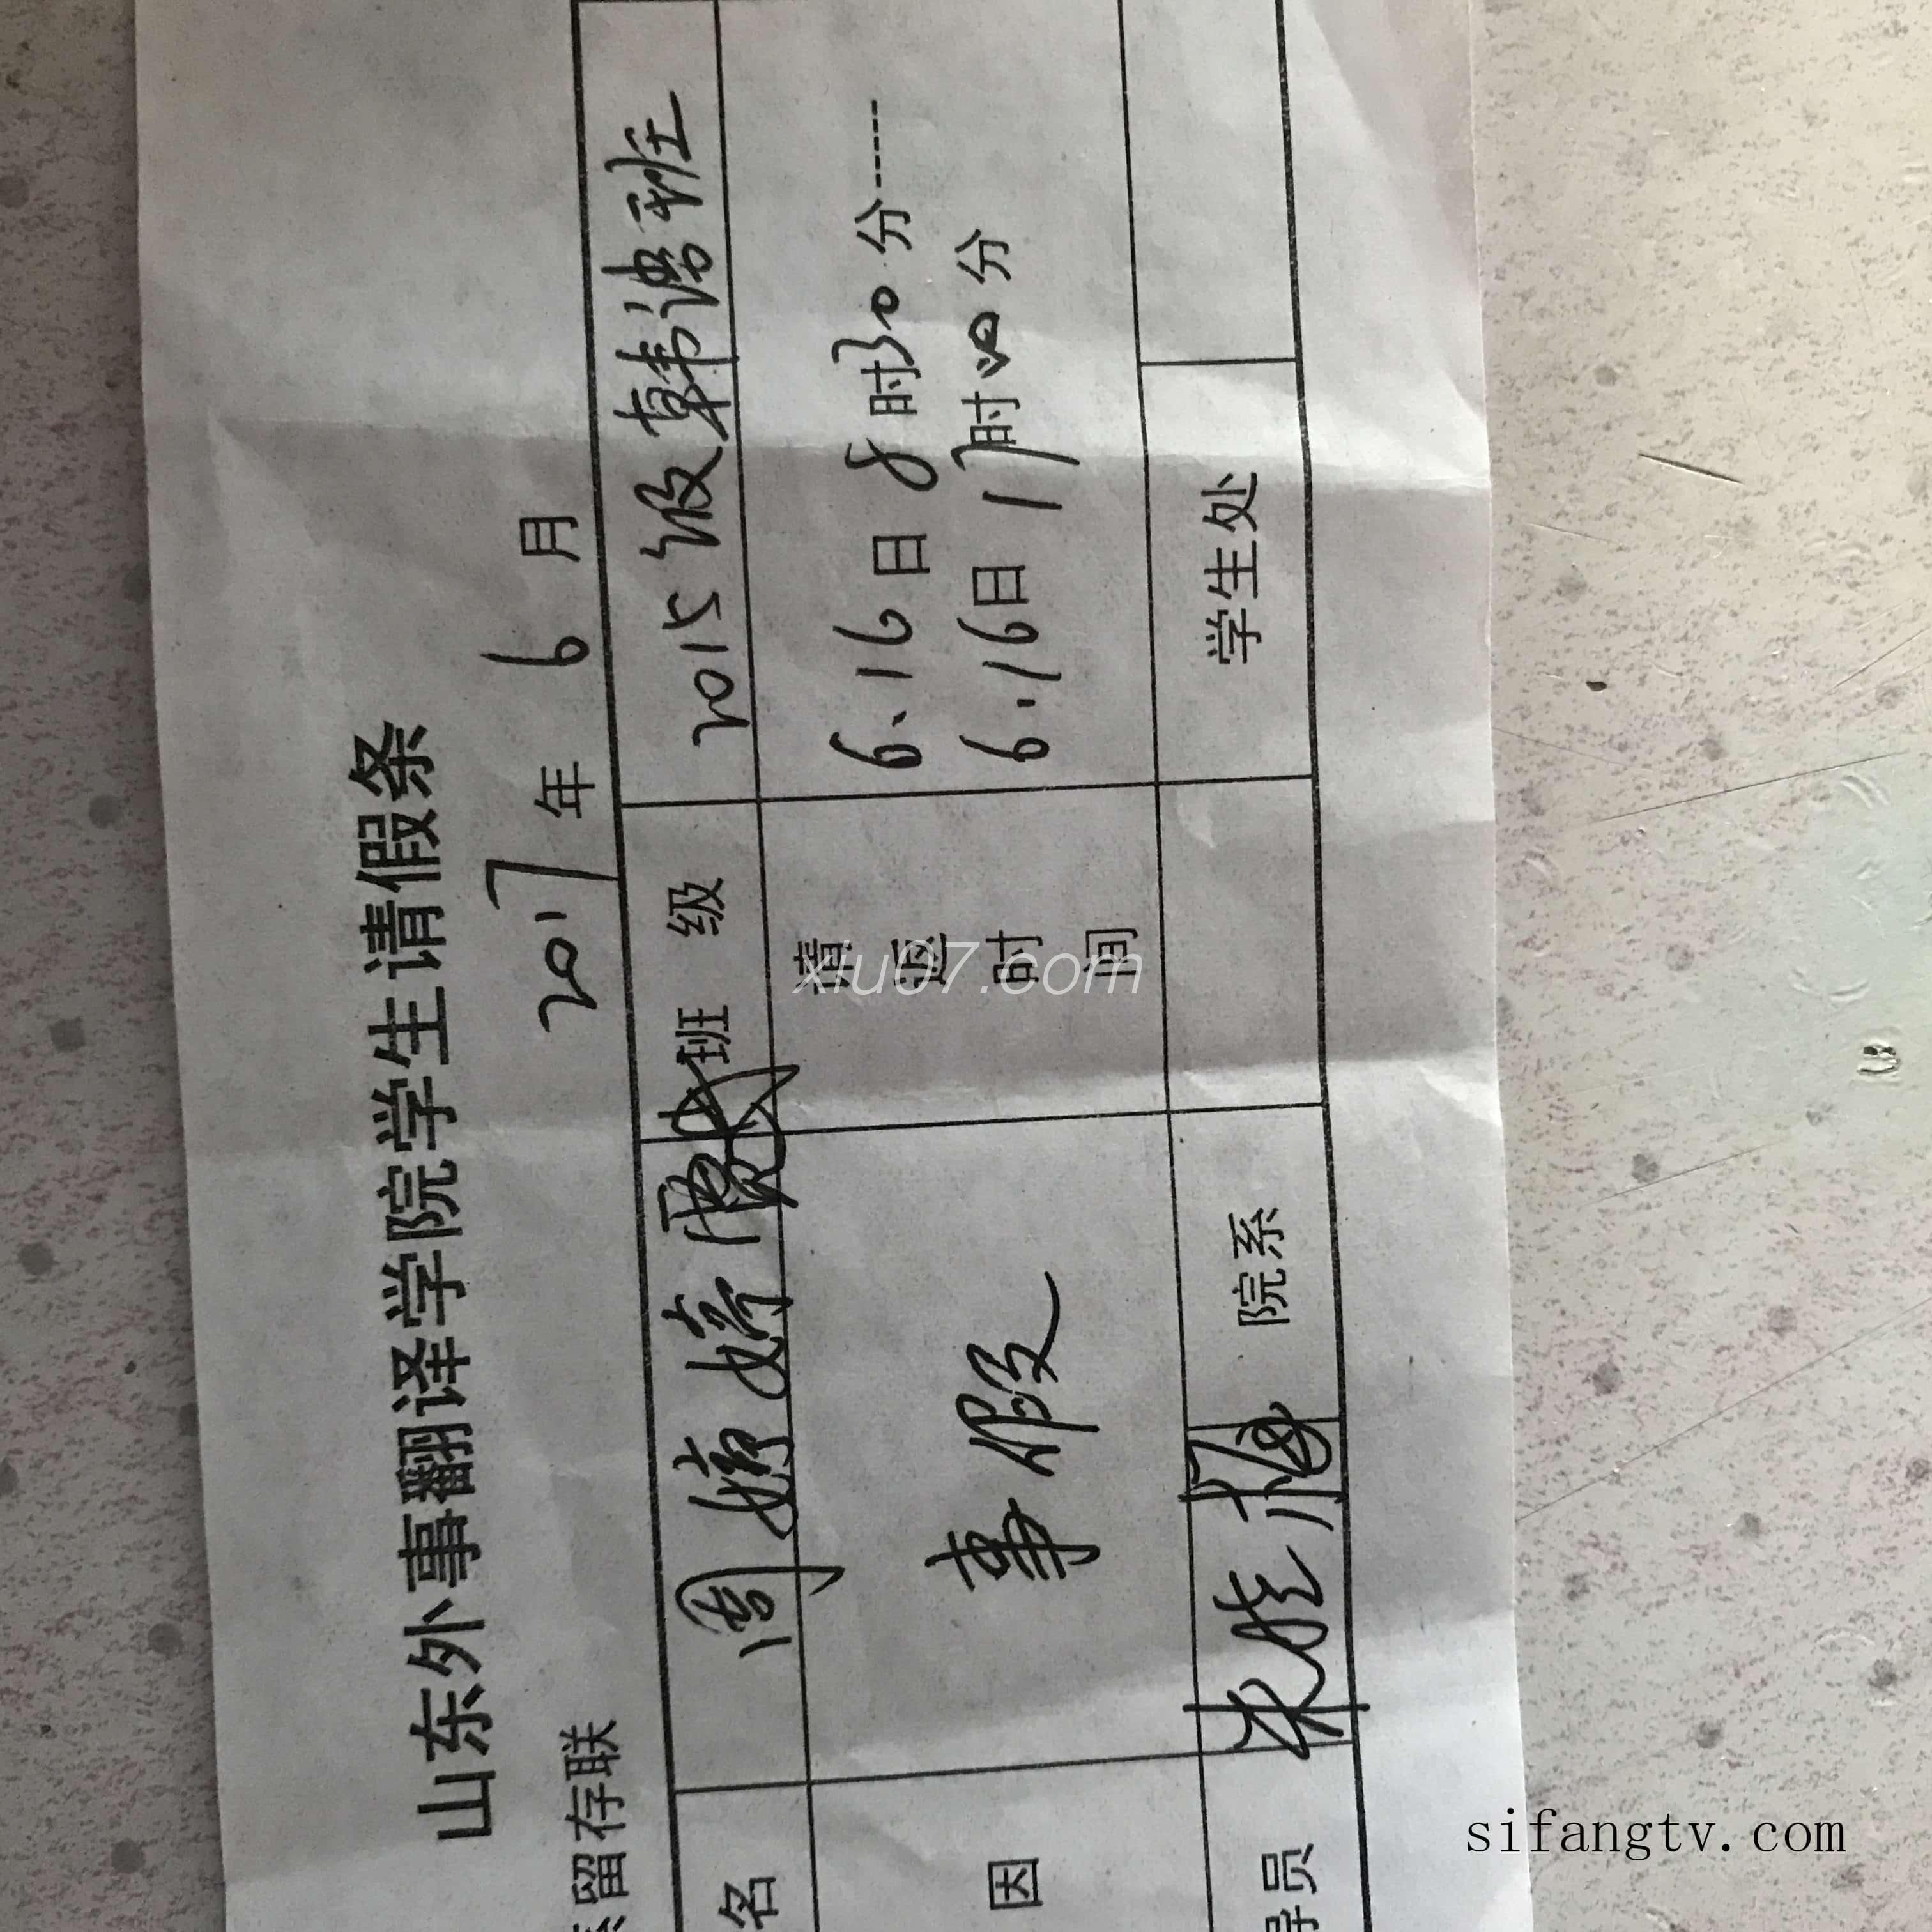 山东外事翻译学院学生请假条
留存联
2017年 6月
名 周婷婷 班级 2015级韩语班
因 事假 请返时间 6.16日8时30分------
6.16日17时00分
导员 院系 学生处
xiu07.com
sifangtv.com